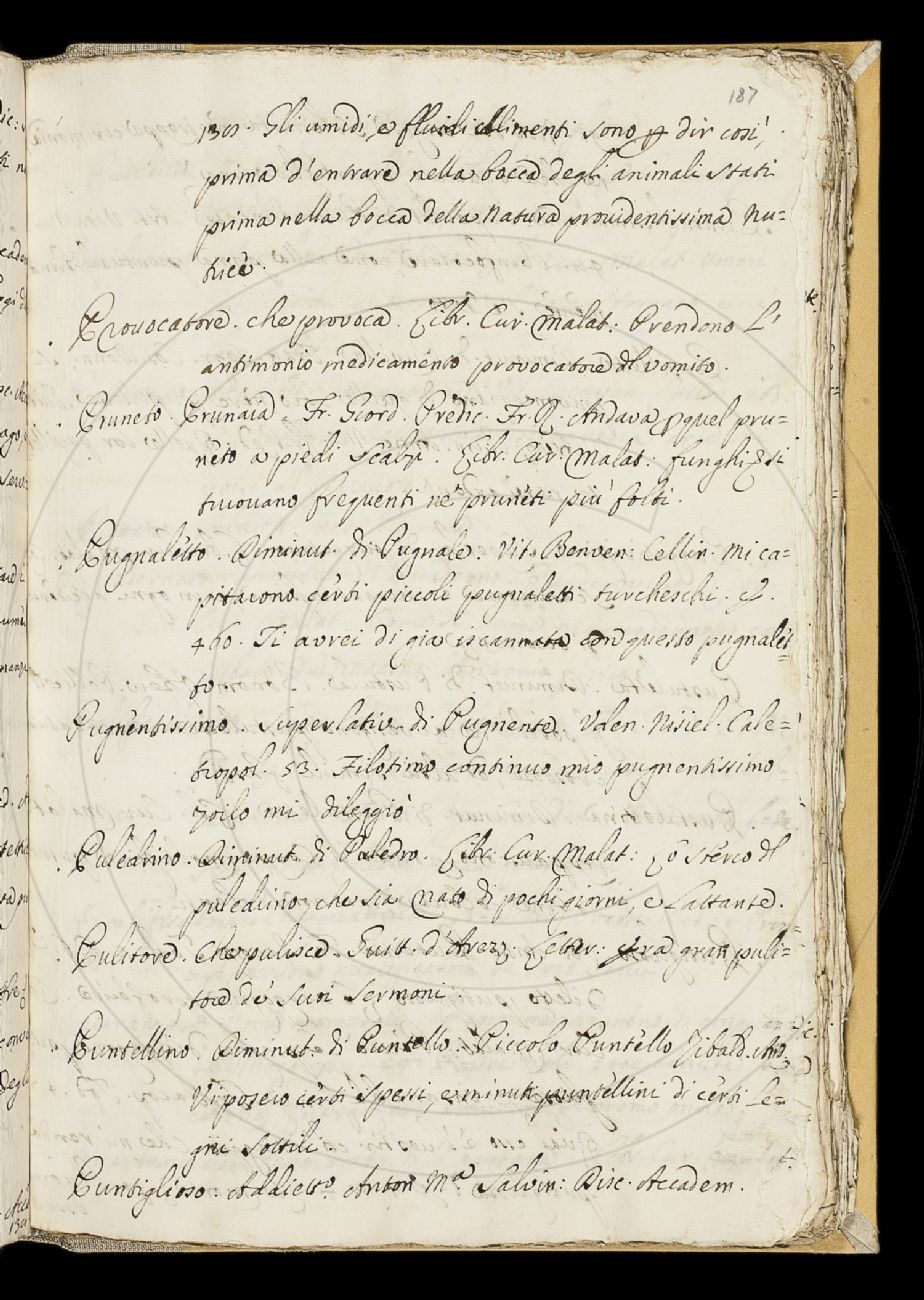 187
130. Gli umidi, e fluidi alimenti sono p dir così,
prima d'entrare nella bocca degli animali stati
prima nella bocca della natura providentissima nu=
trice.
Provocatore. che provoca. Libr. Cur. Malat: Prendono L'
antimonio medicamento provocatore dl vomito.
Pruneto. Prunaia. Fr. Giord. Predic. Fr. R. Andava p quel pru=
neto a piedi scalzi. Libr. Cur. Malat: funghi si
truovano frequenti ne' pruneti più folti.
Pugnaletto. Diminut. di Pugnale. Vit. Benven: Cellin. mi ca=
pitarono certi piccoli pugnaletti turcheschi. E
460. Ti avrei di già iscannata con questo pugnalet
to.
Pugnentissimo. Superlativ. di Pugnente. Uden. Nisiel. Cale=
tropol. 53. Filotimo continuo mio pugnentissimo
zoilo mi dileggiò
Puledrino. Diminut. di Puledro. Libr. Cur. Malat: Lo sterco dl
puledrino, che sia nato di pochi giorni, e Lattante.
Pulitore. Che pulisce. Guitt. d'Arezz. Letter: Era gran puli=
tore de' suoi sermoni.
Puntellino. Diminut. di Puntello. Piccolo Puntello Zibald. And.
Vi posero certi spessi, e minuti puntellini di certi Le=
gni sottili
Puntiglioso. Addiett.o Anton M.a Salvin: Disc. Accadem.